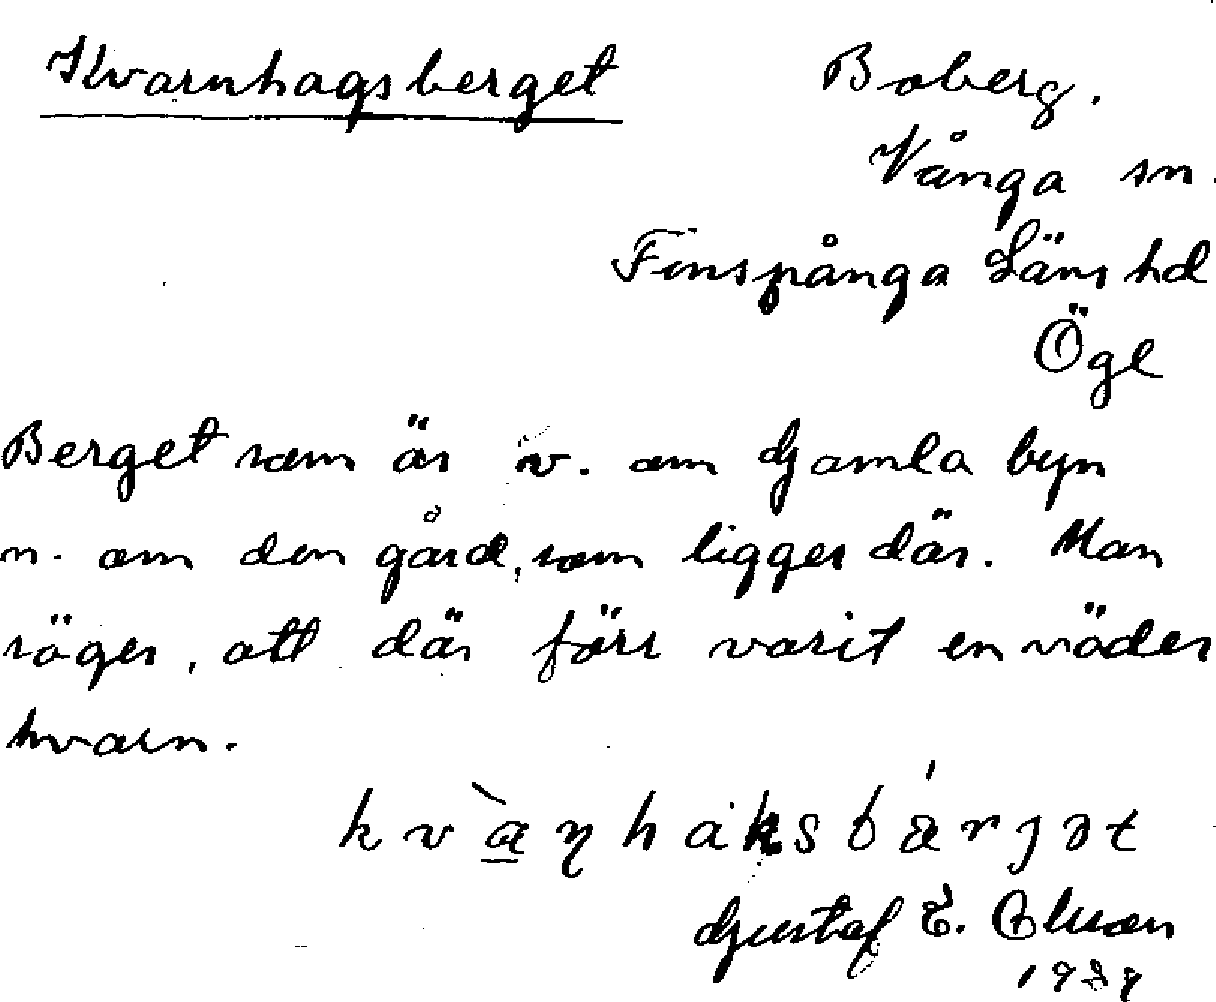 Kvarnhagsberget Boberg.
Vånga sn.
Finspånga Läns hd
Ögl
Berget som är v. om Gamla byn
n. om den gård, som ligger där. Man
säger, att där förr varit en väder
kvarn.
kvànhaksbárjət
Gustaf E.